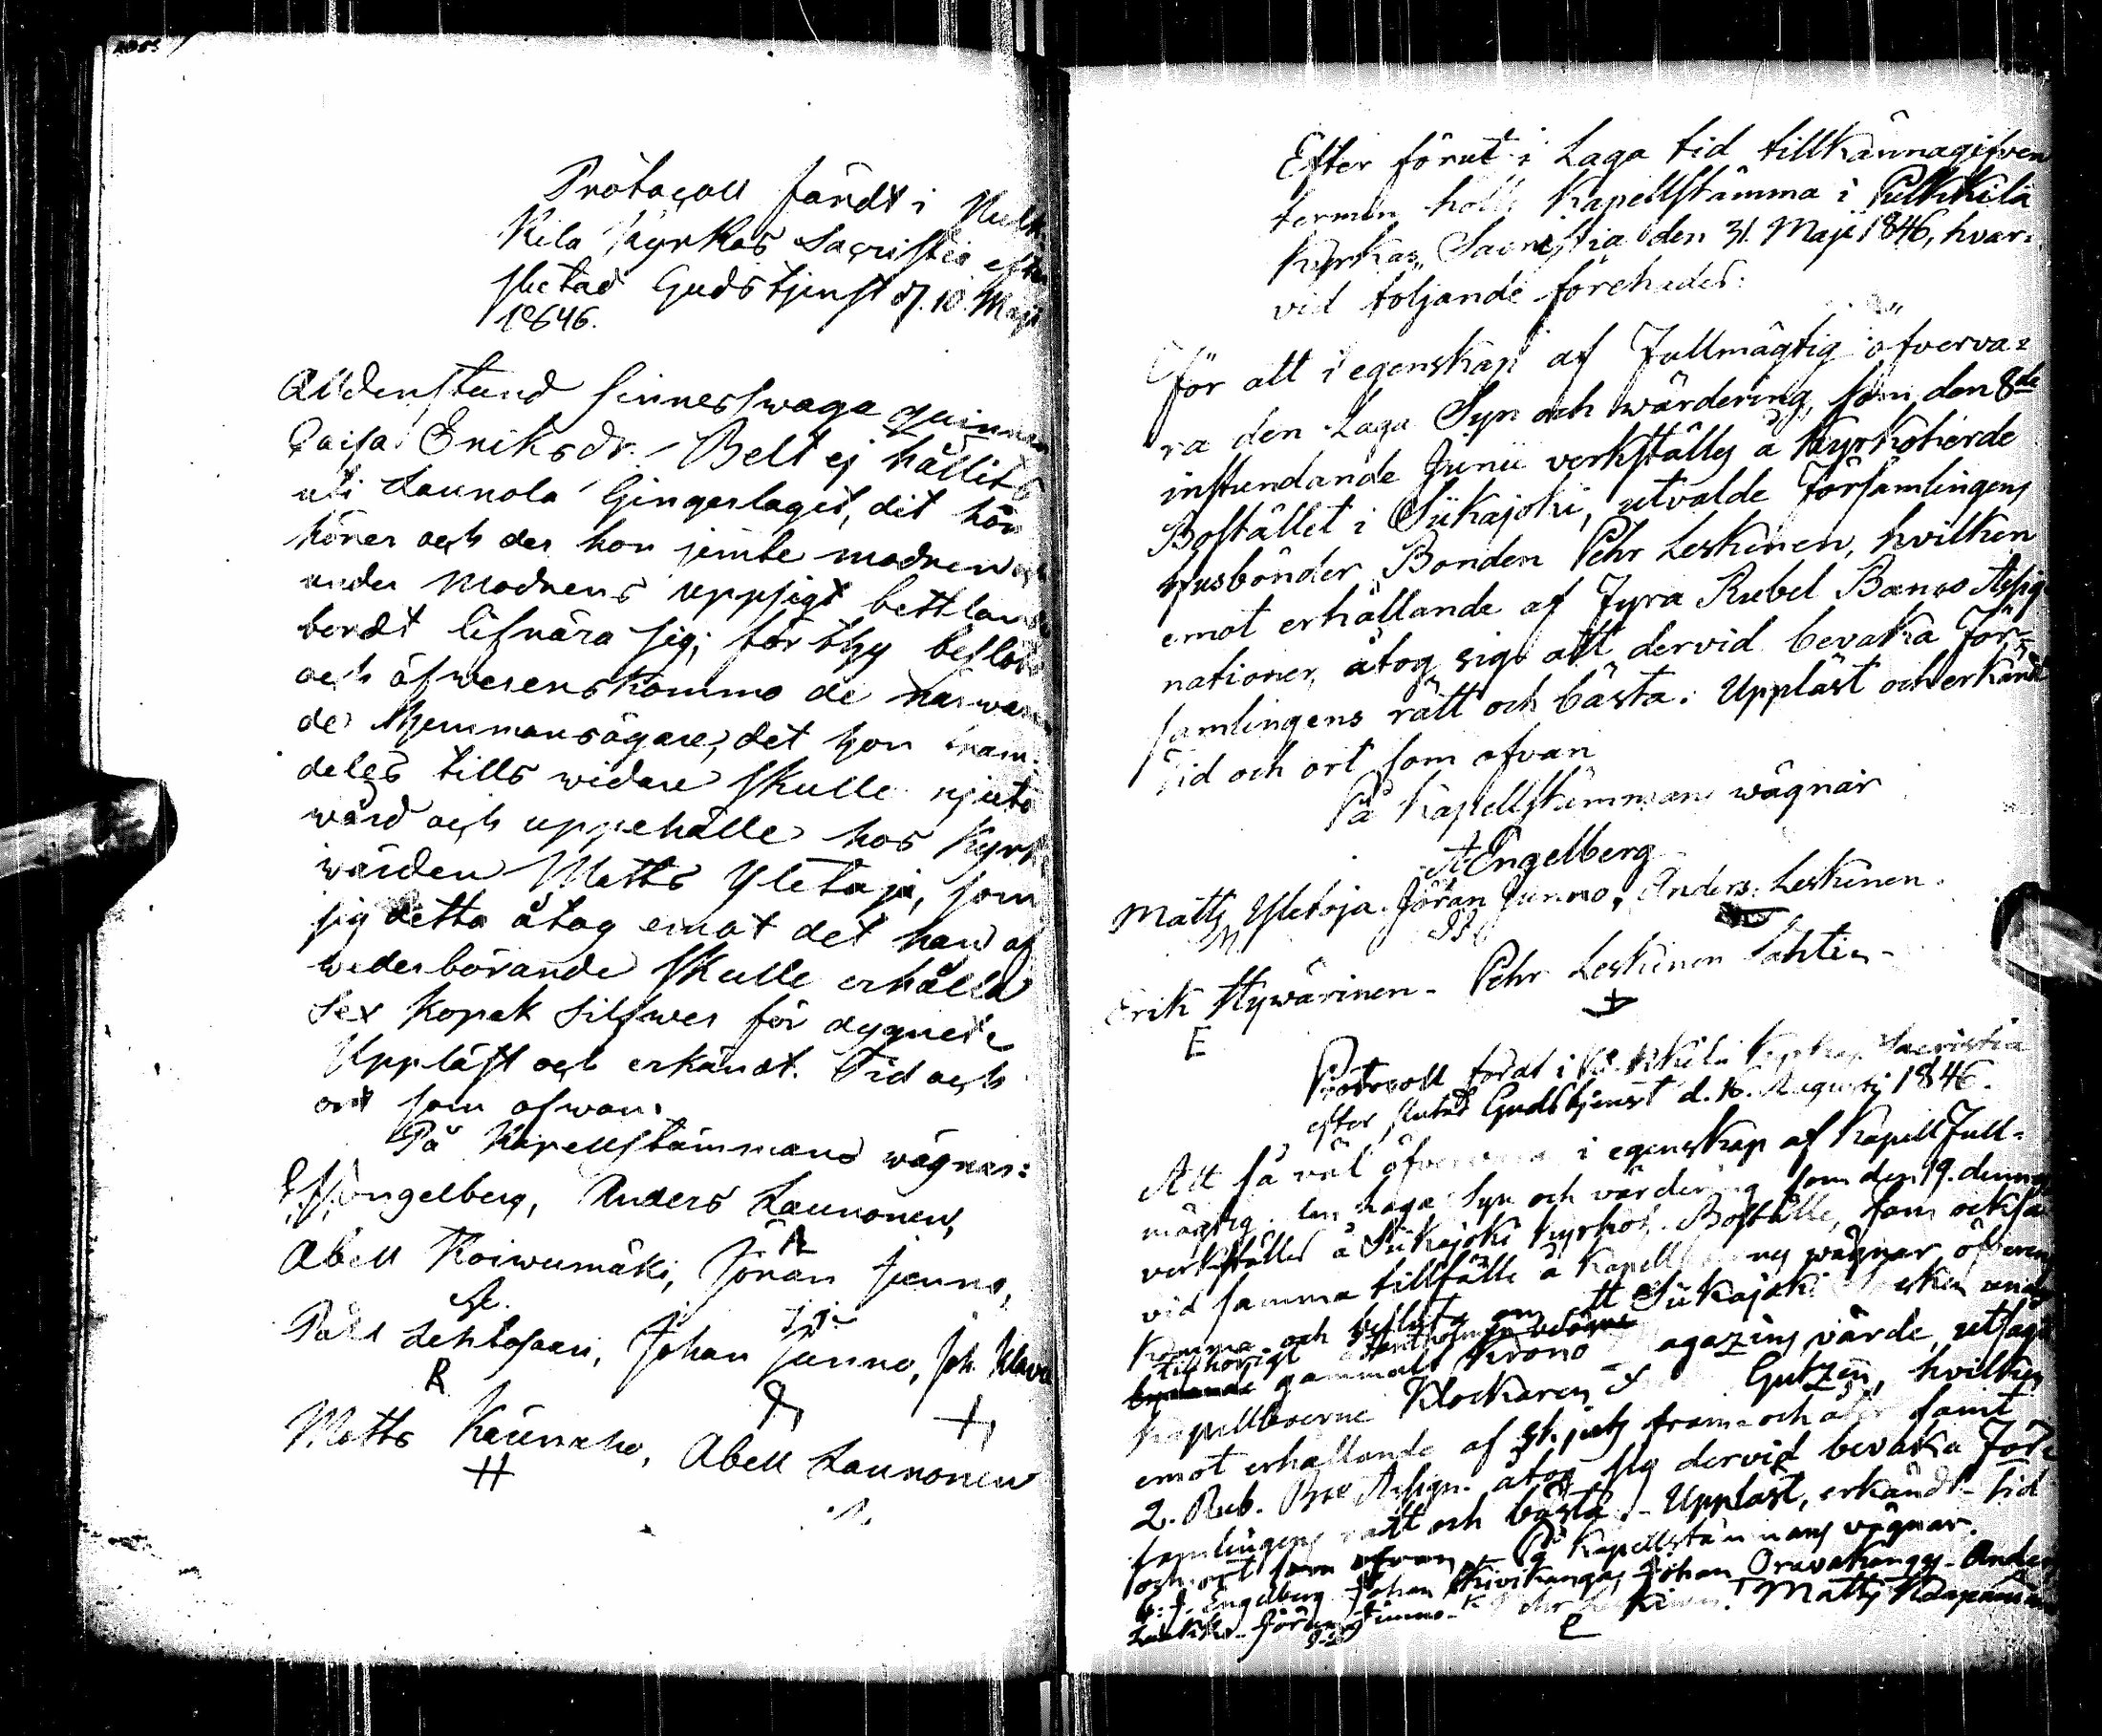 Protocoll fördt i Pulk
kila Kyrkas Sacristia efter
slutad Gudstjenst d. 10 Maji
1846.
Alldenstund sinnessvaga quinnan
Caisa Eriksdr. Belt ej hållits
uti Launola Gingerlaget, dit hon
hörer och der hon jemte modren och
under modrens uppsigt bettlande
bordt lifnära sig; för thy beslöto
och öfwerenskommo de närwaran
de Hemmansägare, det hon fram-
deles tills widare skulle njuta
wård och uppehälle hos Kyrk
wärden Matts Yletaja, som
sig detta åtog emot det han af
wederbörande skulle erhålla
Sex Kopek Silfwer för dygnet
Uppläst och erkändt. Tid och
ort som ofwan.
På Kapellstämmans wägnar:
Engelberg, Anders Launonen,
Abell Koiwumäki, Jöran Junno,
Påhl Lehtosaari, Johan Junno, Joh.
R
Matts Abell Launonen
H
Efter förut i Laga tid tillkännagifven
termin hölls Kapellstämma i Pulkkila
Kyrkas Sacristia den 31. Maji 1846, hvar-
vid följande förehades:
För att i egenskap af Fullmägtig öfverva-
ra den Laga Syn och wärdering, som den 8de
instundande Junii verkställes å Kyrkoherde
Bostället i Siikajoki, utvalde Församlingens
Husbönder Bonden Pehr Leskinen, hvilken
emot erhållande af Fyra Rubel Banco Assig
nationer, åtog sig att dervid bevaka För-
samlingens rätt och bästa. Uppläst och erkändt
Tid och ort som ofvan
På Kapellstämmans wägnar
Engelberg
Matts Yletoja. Jöran Junno, Anders Leskinen.
Erik Hywärinen - Pehr Leskinen Lahti
E
Protocoll fördt i Pulkkila Kyrkas Sacristia
efter slutad Gudstjenst d. 16. Augusti 1846.
Att så väl öfvervara i egenskap af Kapell Full-
mägtig den Laga Syn och värdering som den 19. dennes
verkställes å Siikajoki Kyrkoh. Boställe, som också
vid samma tillfälle å Kapell wägnar öfverens
komma och besluta om Siikajoki
tillhörigt gammalt Krono magazins värde, utsågo
Kapellboerne Klockaren Gutzén, hvilken
emot erhållande af skjuts fram- och åter samt
2. Rub. Bco Assign. åtog sig dervid bevaka För-
samlingens rätt och bästa. - Uppläst, erkändt - tid
och ort som ofvan På Kapellstämmans vägnar.
Engelberg Johan Kivikangas Johan Oravakangas - Anders
Jöran Junno - Matts